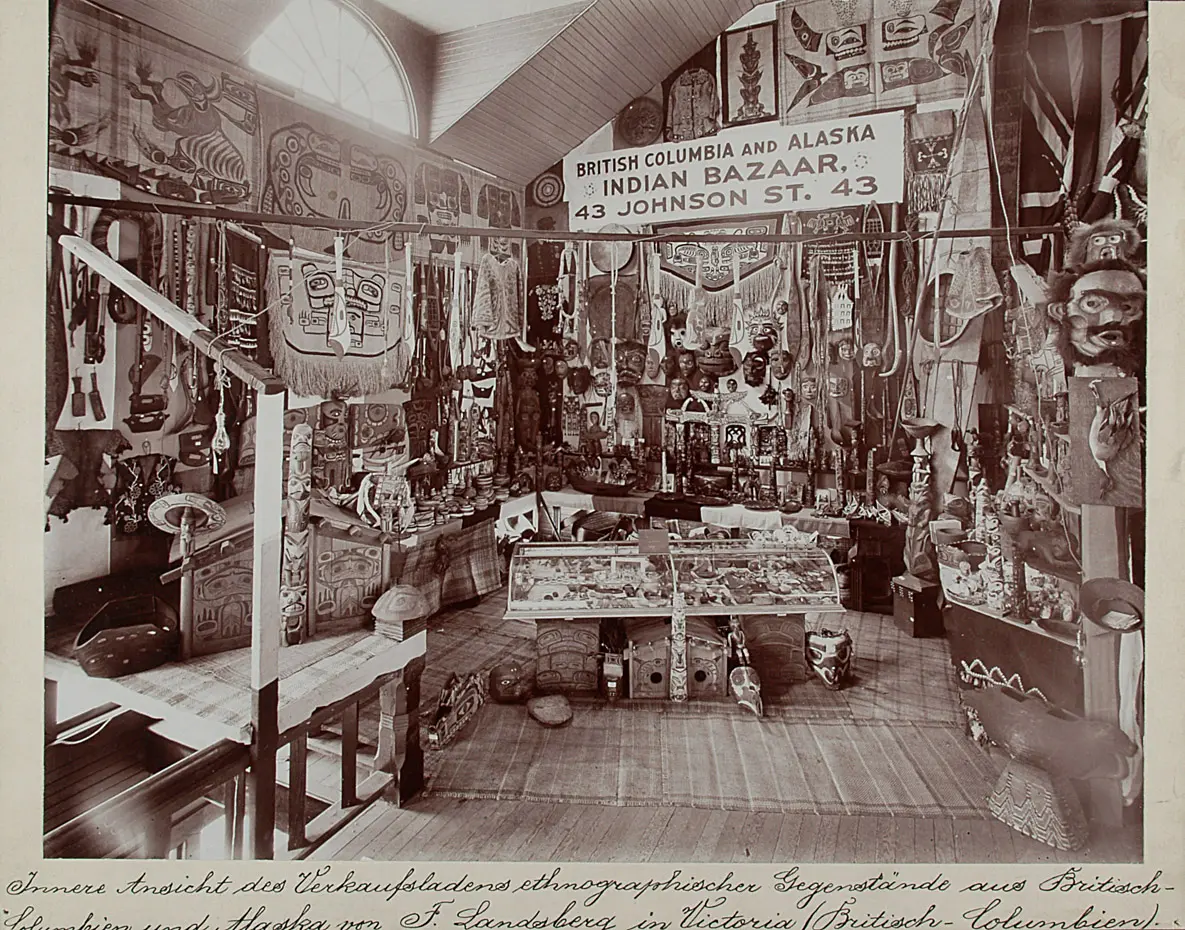 BRITISH COLUMBIA AND ALASKA
INDIAN BAZAAR,
43 JOHNSON ST. 43
Innere Ansicht des Verkaufsladens ethnographischer Gegenstände aus Britisch-
Columbien und Alaska von F. Landsberg in Victoria (Britisch-Columbien).